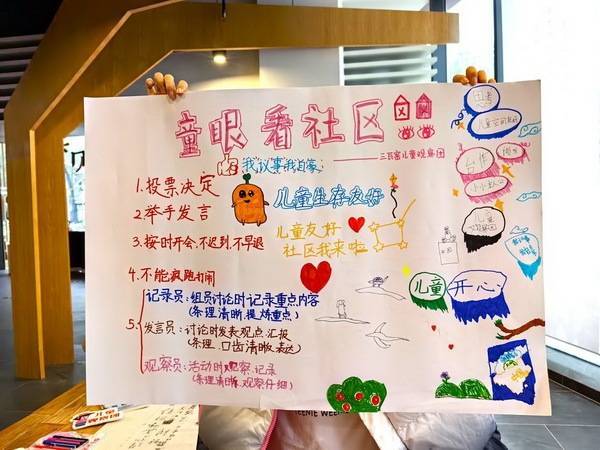 童眼看社区
我议事我自豪
1.投票决定
儿童生存友好
2.举手发言
儿童友好
社区我来啦
3.按时开会,不迟到,不早退
4.不能疯跑打闹
5.
记录员:组员讨论时记录重点,内容
(条理清晰,提炼重点)
发言员:讨论时发表观点,汇报
(条理,口齿清晰,表达)
观察员:活动时观察,记录
(条理清晰,观察仔细)
合作
儿童
儿童
开心